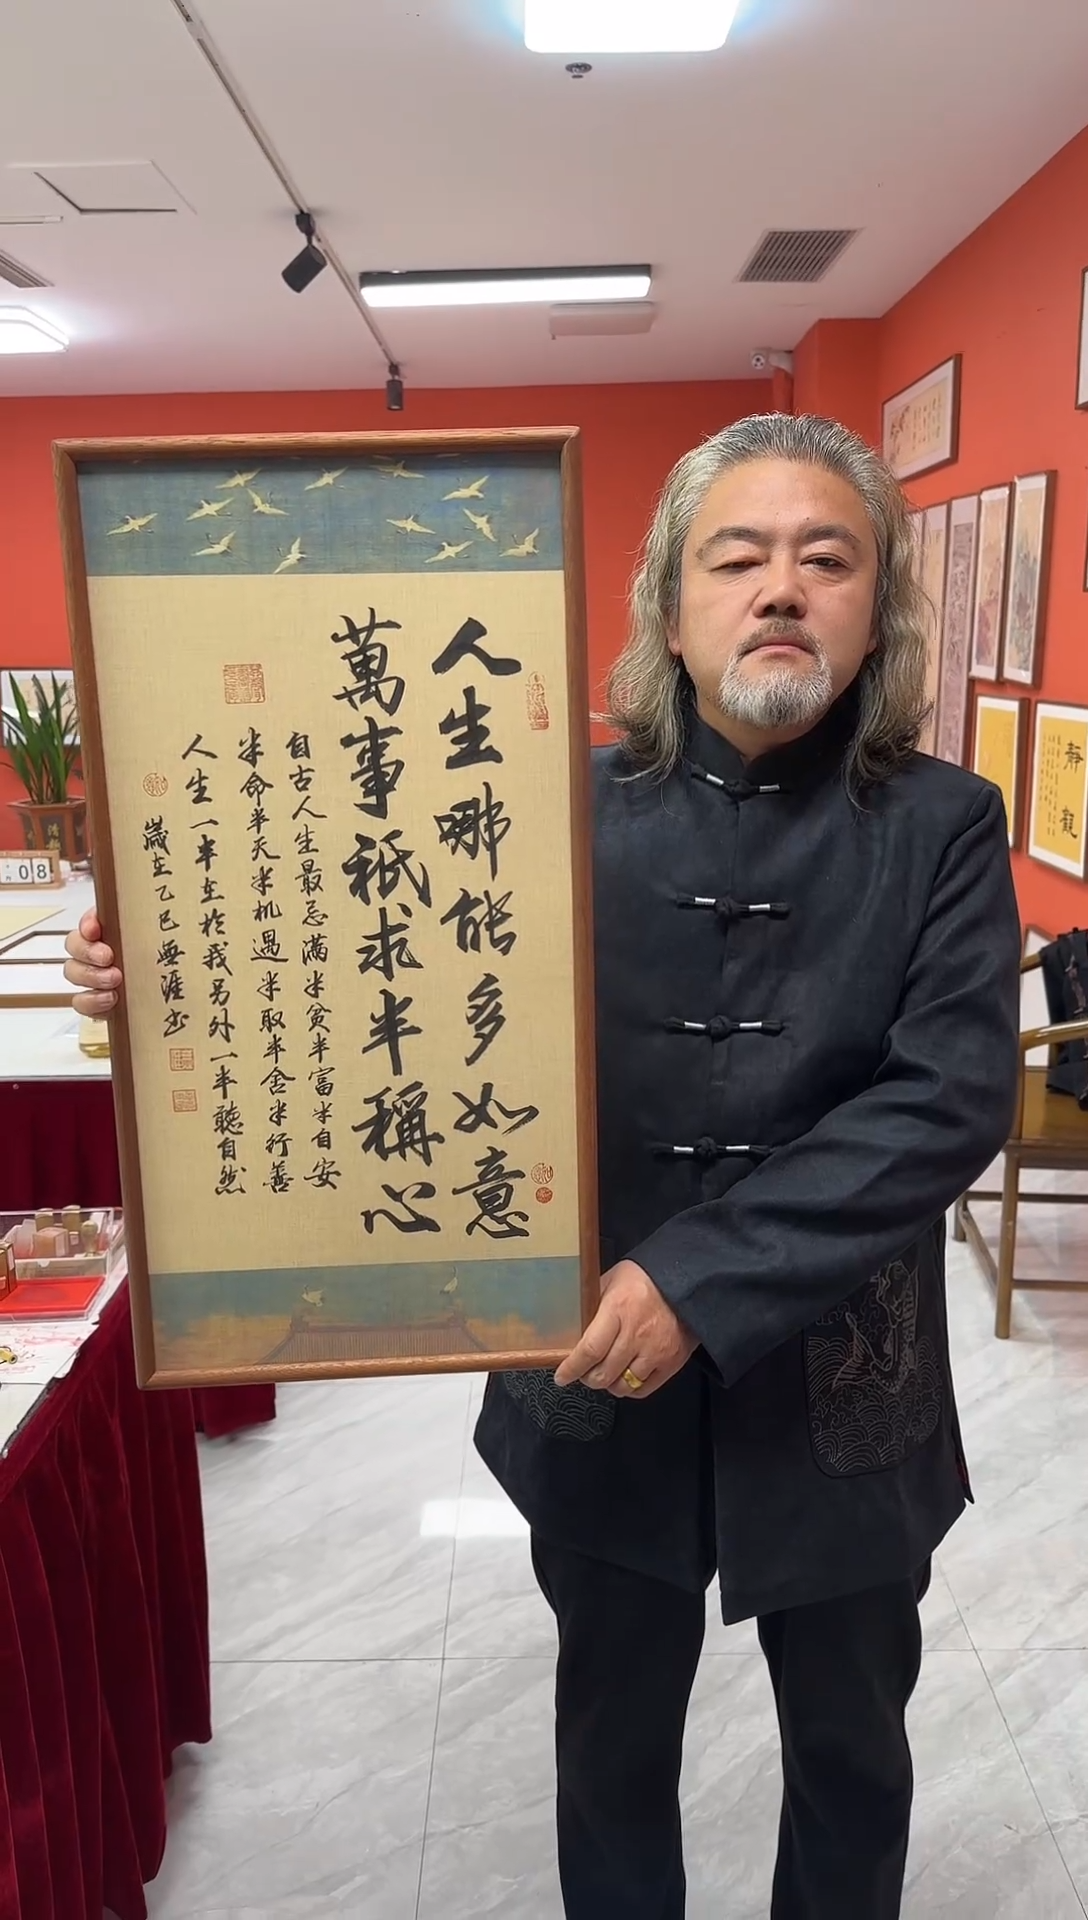 人生哪能多如意
萬事祇求半稱心
自古人生最忌满半贫半富半自安
半命半天半机遇半取半舍半行善
人生一半在於我另外一半聽自然
歲在乙巳無涯书
靜觀
08